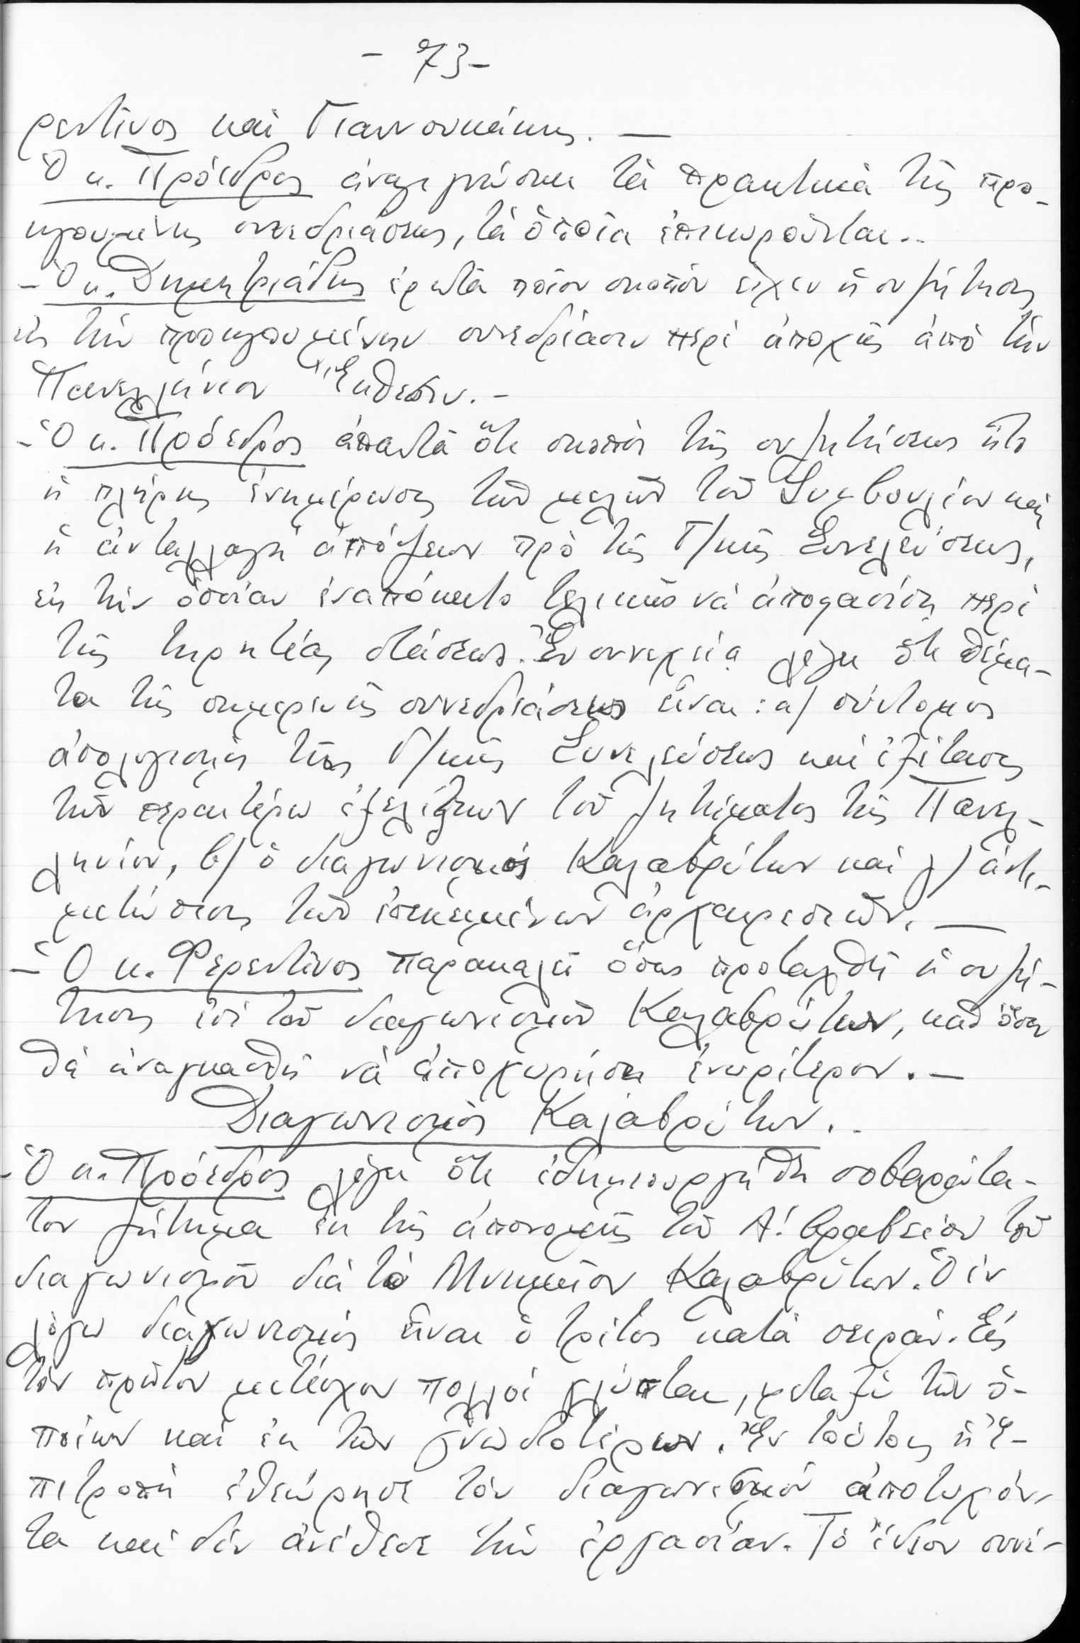 - 73 -
ρεντῖνος καὶ Γιαννουκάκης. —
Ὁ κ. Πρόεδρος ἀναγιγνώσκει τὰ πρακτικὰ τῆς προ-
ηγουμένης συνεδριάσεως, τὰ ὁποῖα ἐπικυροῦνται.-
- Ὁ κ. Δημητριάδης ἐρωτᾶ ποῖον σκοπὸν εἶχεν ἡ συζήτησις
εἰς τὴν προηγουμένην συνεδρίασιν περὶ ἀποχῆς ἀπὸ τὴν
Πανελλήνιον Ἔκθεσιν. -
- Ὁ κ. Πρόεδρος ἀπαντᾶ ὅτι σκοπὸς τῆς συζητήσεως ἦτο
ἡ πλήρης ἐνημέρωσις τῶν μελῶν τοῦ Συμβουλίου καὶ
ἡ ἀνταλλαγὴ ἀπόψεων πρὸ τῆς Γ/κῆς Συνελεύσεως,
εἰς τὴν ὁποίαν ἐναπόκειτο τελικῶς νὰ ἀποφασίση περὶ
τῆς τηρητέας στάσεως. Ἐν συνεχείᾳ λέγει ὅτι θέμα-
τα τῆς σημερινῆς συνεδριάσεως εἶναι: α/ σύντομος
ἀπολογισμὸς τῆς Γ/κῆς Συνελεύσεως καὶ ἐξέτασις
τῶν περαιτέρω ἐξελίξεων τοῦ ζητήματος τῆς Πανελ-
ληνίου, β/ ὁ διαγωνισμὸς Καλαβρύτων καὶ γ/ ἀντι-
μετώπισις τῶν ἐπικειμένων ἀρχαιρεσιῶν. —
- Ὁ κ. Φερεντῖνος παρακαλεῖ ὅπως προταχθῆ ἡ συζή-
τησις ἐπὶ τοῦ διαγωνισμοῦ Καλαβρύτων, καθ' ὅσον
θὰ ἀναγκασθῆ νὰ ἀποχωρήση ἐνωρίτερον. —
Διαγωνισμὸς Καλαβρύτων. -
- Ὁ κ. Πρόεδρος λέγει ὅτι ἐδημιουργήθη σοβαρώτα-
τον ζήτημα ἐκ τῆς ἀπονομῆς τοῦ Α! βραβείου τοῦ
διαγωνισμοῦ διὰ τὸ Μνημεῖον Καλαβρύτων. Ὁ ἐν
λόγω διαγωνισμὸς εἶναι ὁ τρίτος κατὰ σειράν. Εἰς
τὸν πρῶτον μετέσχον πολλοὶ γλύπται, μεταξὺ τῶν ὁ-
ποίων καὶ ἐκ τῶν γνωστοτέρων. Ἐν τούτοις ἡ Ἐ-
πιτροπὴ ἐθεώρησε τὸν διαγωνισμὸν ἀποτυχόν-
τα καὶ δὲν ἀνέθεσε τὴν ἐργασίαν. Τὸ ἴδιον συνέ-